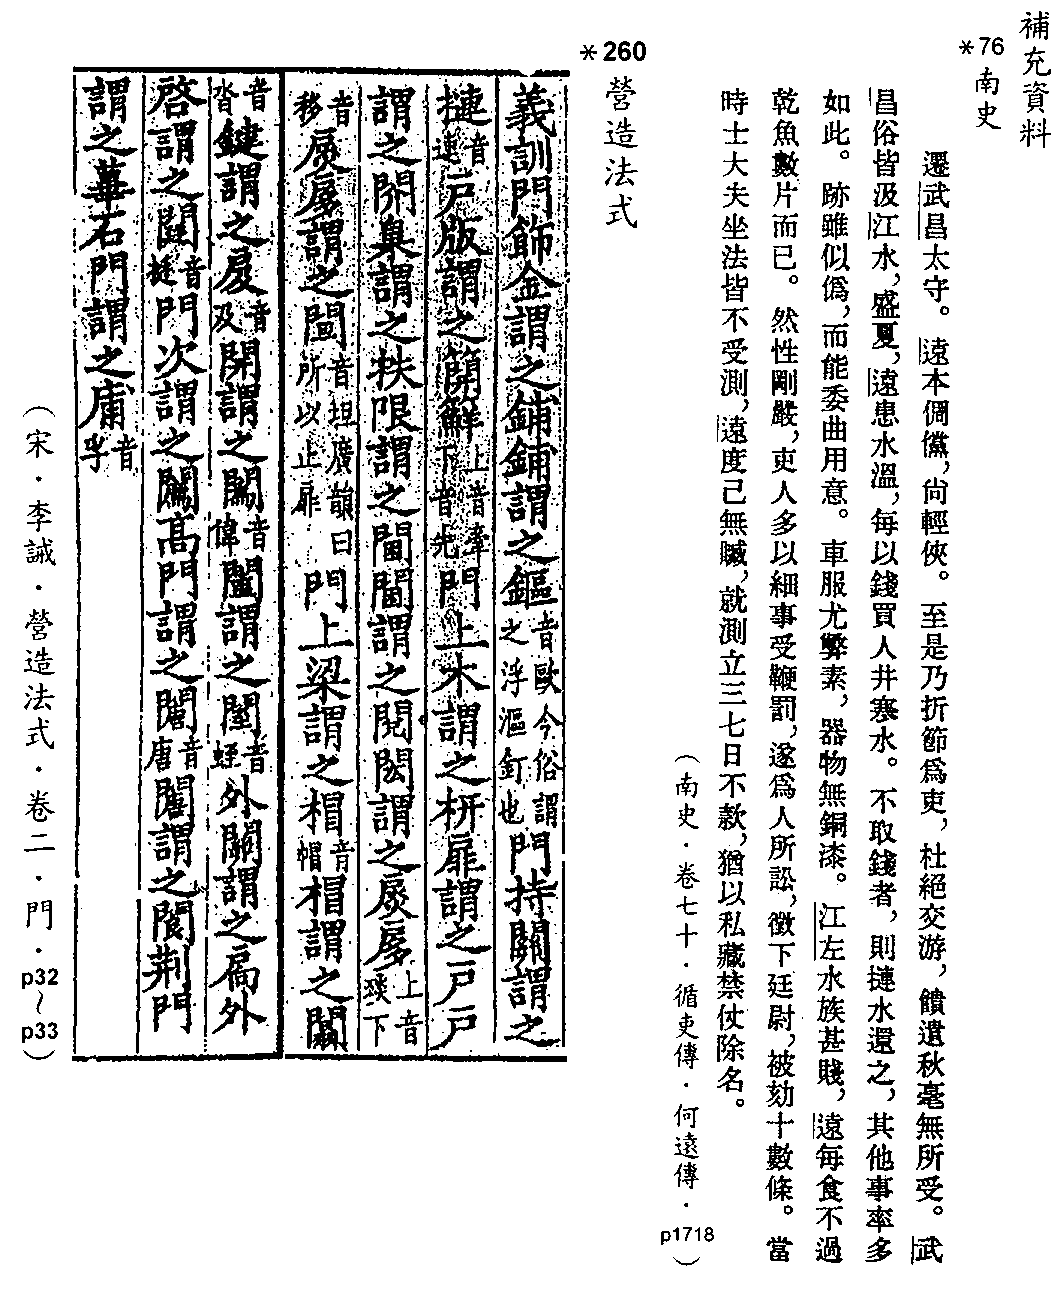 補充資料
*76 南史
遷武昌太守。遠本倜儻,尙輕俠。至是乃折節爲吏,杜絕交游,饋遺秋毫無所受。武
昌俗皆汲江水,盛夏,遠患水溫,每以錢買人井寒水。不取錢者,則摙水還之,其他事率多
如此。跡雖似僞,而能委曲用意。車服尤弊素,器物無銅漆。江左水族甚賤,遠每食不過
乾魚數片而已。然性剛嚴,吏人多以細事受鞭罰,遂爲人所訟,徵下廷尉,被劾十數條。當
時士大夫坐法皆不受測,遠度己無贓,就測立三七日不款,猶以私藏禁仗除名。
(南史.卷七十.循吏傳.何遠傳.p1718)
*260 營造法式
義訓門飾金謂之鋪鋪謂之鏂音歐今俗謂之浮漚釘也門持關謂之
摙音連戶版謂之䉷䉶上音牽下音先門上木謂之枅扉謂之戶戶
謂之閉臬謂之柣限謂之閫閫謂之閱閎謂之扊扅上音琰下
音移扊扅謂之閩音坦廣韻曰所以止扉門上梁謂之楣音帽楣謂之闒
音沓鍵謂之扊音及開謂之闈音偉闔謂之闔音蛭外關謂之扃外
啓謂之闥音挺門次謂之闒高門謂之闛音唐闛謂之閬荆門
謂之蓽石門謂之庯音孚
(宋.李誡.營造法式.卷二.門.p32~p33)